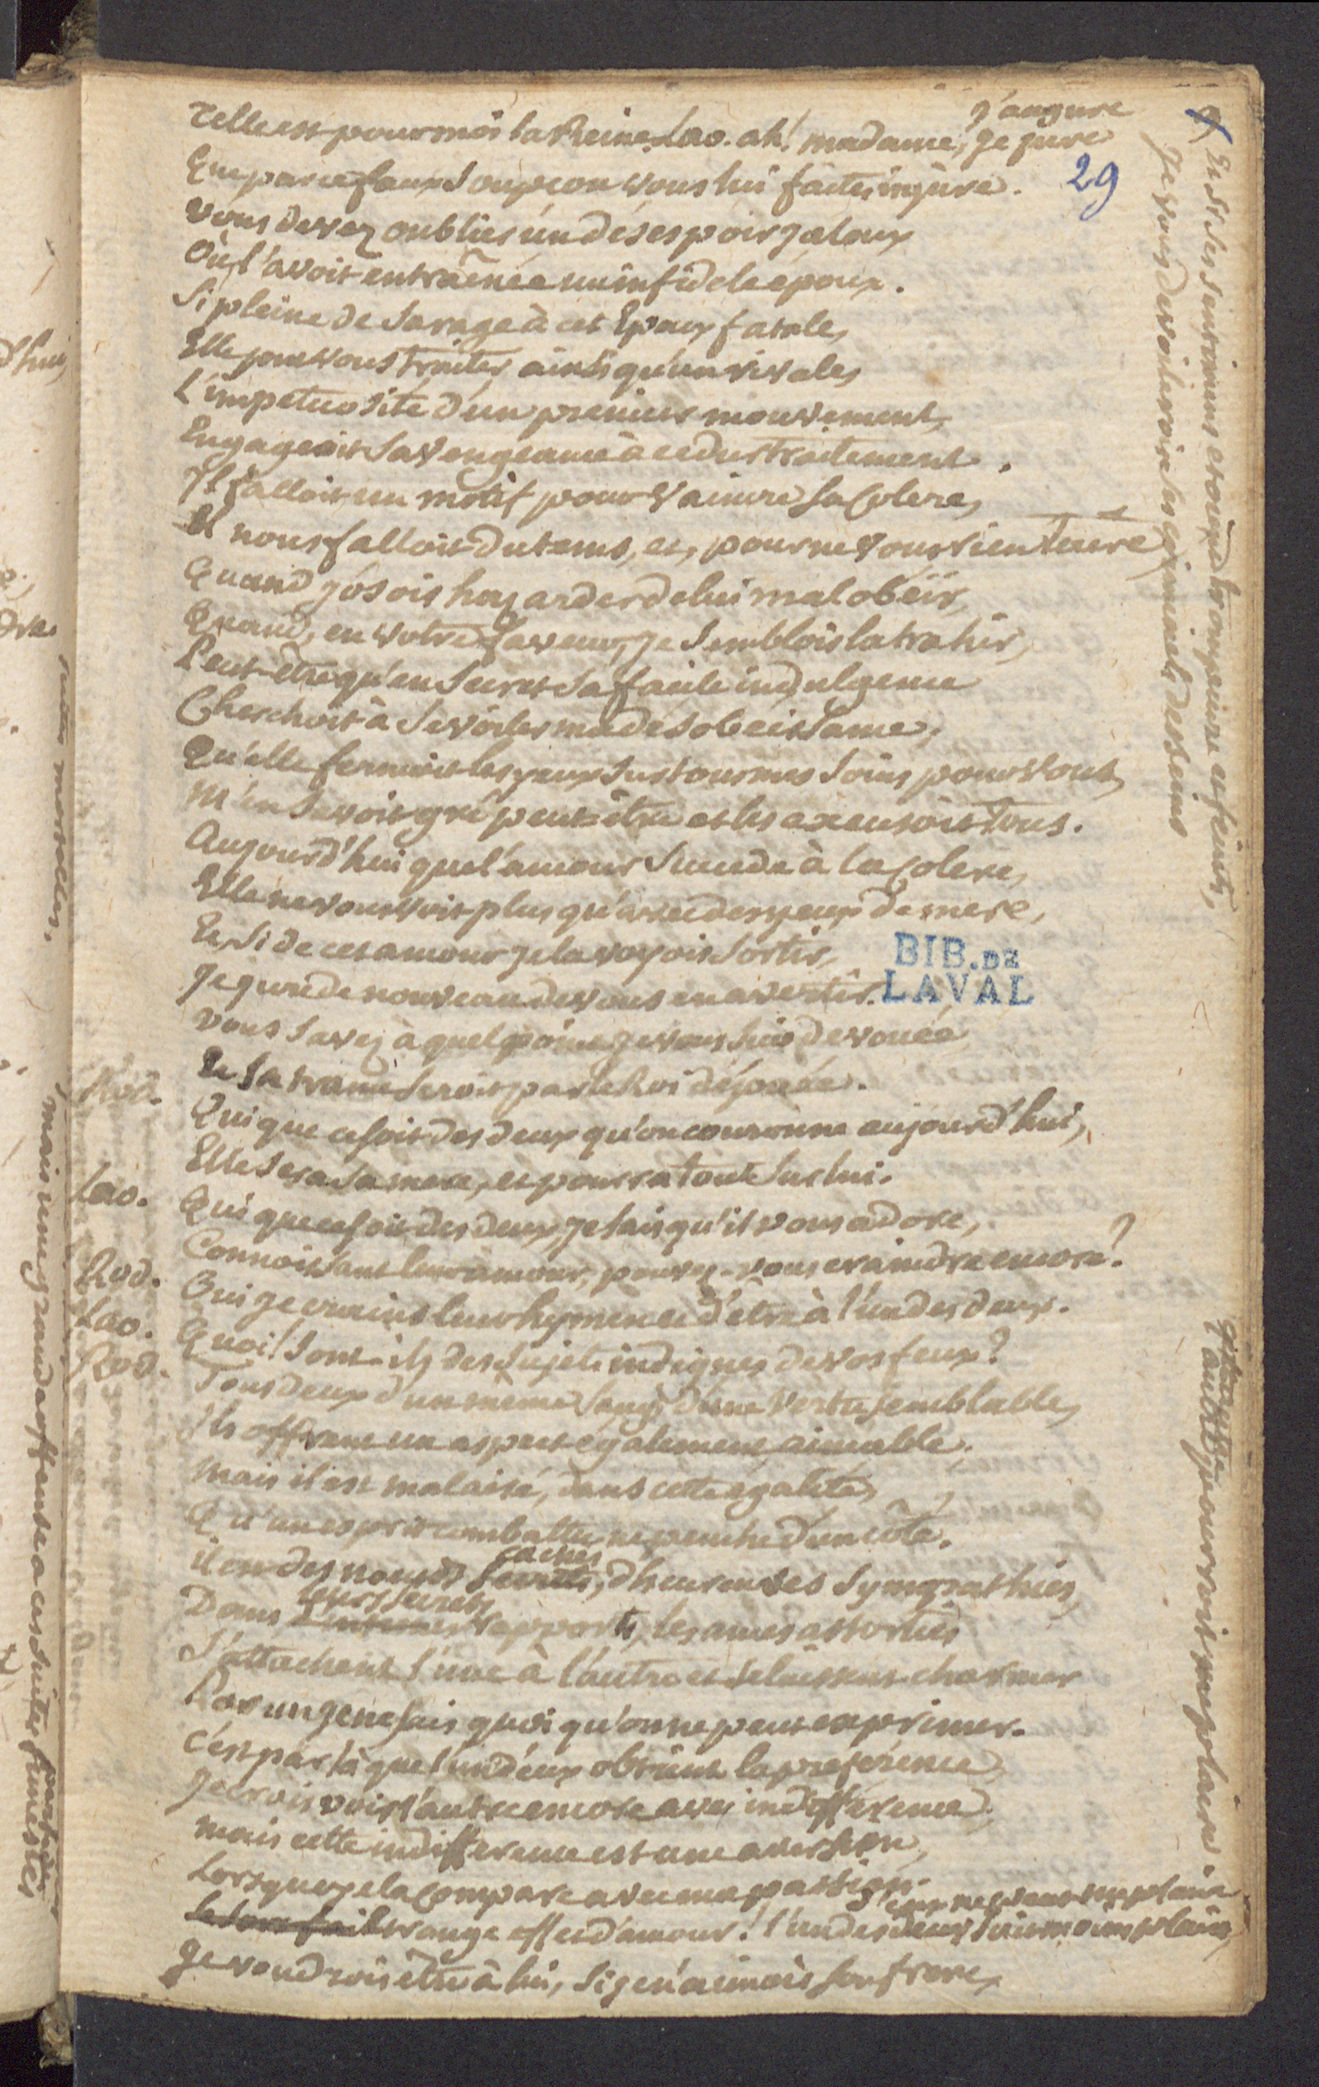 j'augure
Telle est pour moi la Reine. Lao. ah! madame, je jure
Que par ce faux soupçon vous lui faites injure. 29
Vous devez oublier un désespoir jaloux
Où l'avoit entraînée un infidele époux.
Si pleine de sa rage à cet Epoux fatale,
Elle pour vous traiter ainsi qu'un rivale,
L'impetuosité d'un premier mouvement,
Engageoit sa vengeance à ce dur traitement.
Il falloit un motif pour vaincre sa Colere,
Il nous falloit du tems, et, pour ne vous rien taire,
Quand j'osois hazarder de lui mal obéir,
Quand, en votre faveur, je semblois la trahir,
Peut-être qu'en secret sa facile indulgence
Cherchoit à se voiler ma désobeissance,
Qu'elle fermoit les yeux sur tous mes soins pour vous,
M'en savoit gré peut être et les excusoit tous.
Aujourd'hui que l'amour succede à la Colere,
Elle ne vous voit plus qu'avec des yeux de mere,
Et si de cet amour je la voyois sortir,
Je jure de nouveau de vous en avertir.
BIB. DE
LAVAL
Vous savez à quel point je vous suis devouée
Rod. Et sa trame seroit par le Roi déjouée.
Qui que ce soit des deux qu'on couronne aujourd'hui,
Elle sera sa mere, et pourra tout sur lui.
Lao. Qui que ce soit des deux, je sais qu'il vous adore,
Connoissant leur amour, pouvez-vous craindre encore?
Rod. Oui je crains leur hymen et d'être à l'un des deux.
Lao. Quoi! sont-ils des sujets indignes de vos feux?
Rod. Tous deux d'un même sang, d'une vertu semblable,
Ils offrent un aspect egalement aimable.
Mais il est malaisé, dans cette égalité,
Qu'un esprit combattu ne penche d'un côté.
cachés
il est des nœuds secrets, d'heureuses sympathies,
leurs secrets
Dans rapports, les ames assorties
S'attachent l'une à l'autre et se laissent charmer
Par un je ne sais quoi qu'on ne peut exprimer.
C'est par là que l'un d'eux obtient la preférence,
Je crois voir l'autre encore avec indifférence,
Mais cette indifference est une aversion,
Lorsque je la Compare avec ma passion.
étrange effet d'amour! l'un des deux
Je voudrois être à lui, si je n'aimois son frere,
Et si ses sentimens et feints,
Je vous devoilerois ses criminels desseins
l'autre pourroit me plaire.
mais une grande offense a ces suites funestes